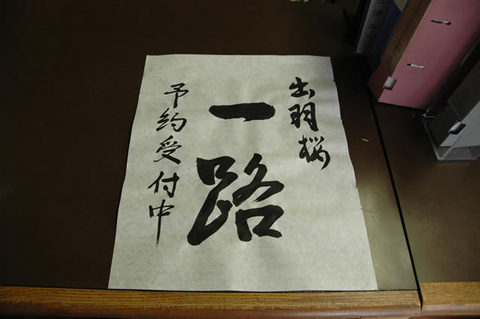 出羽桜
一路
予約受付中